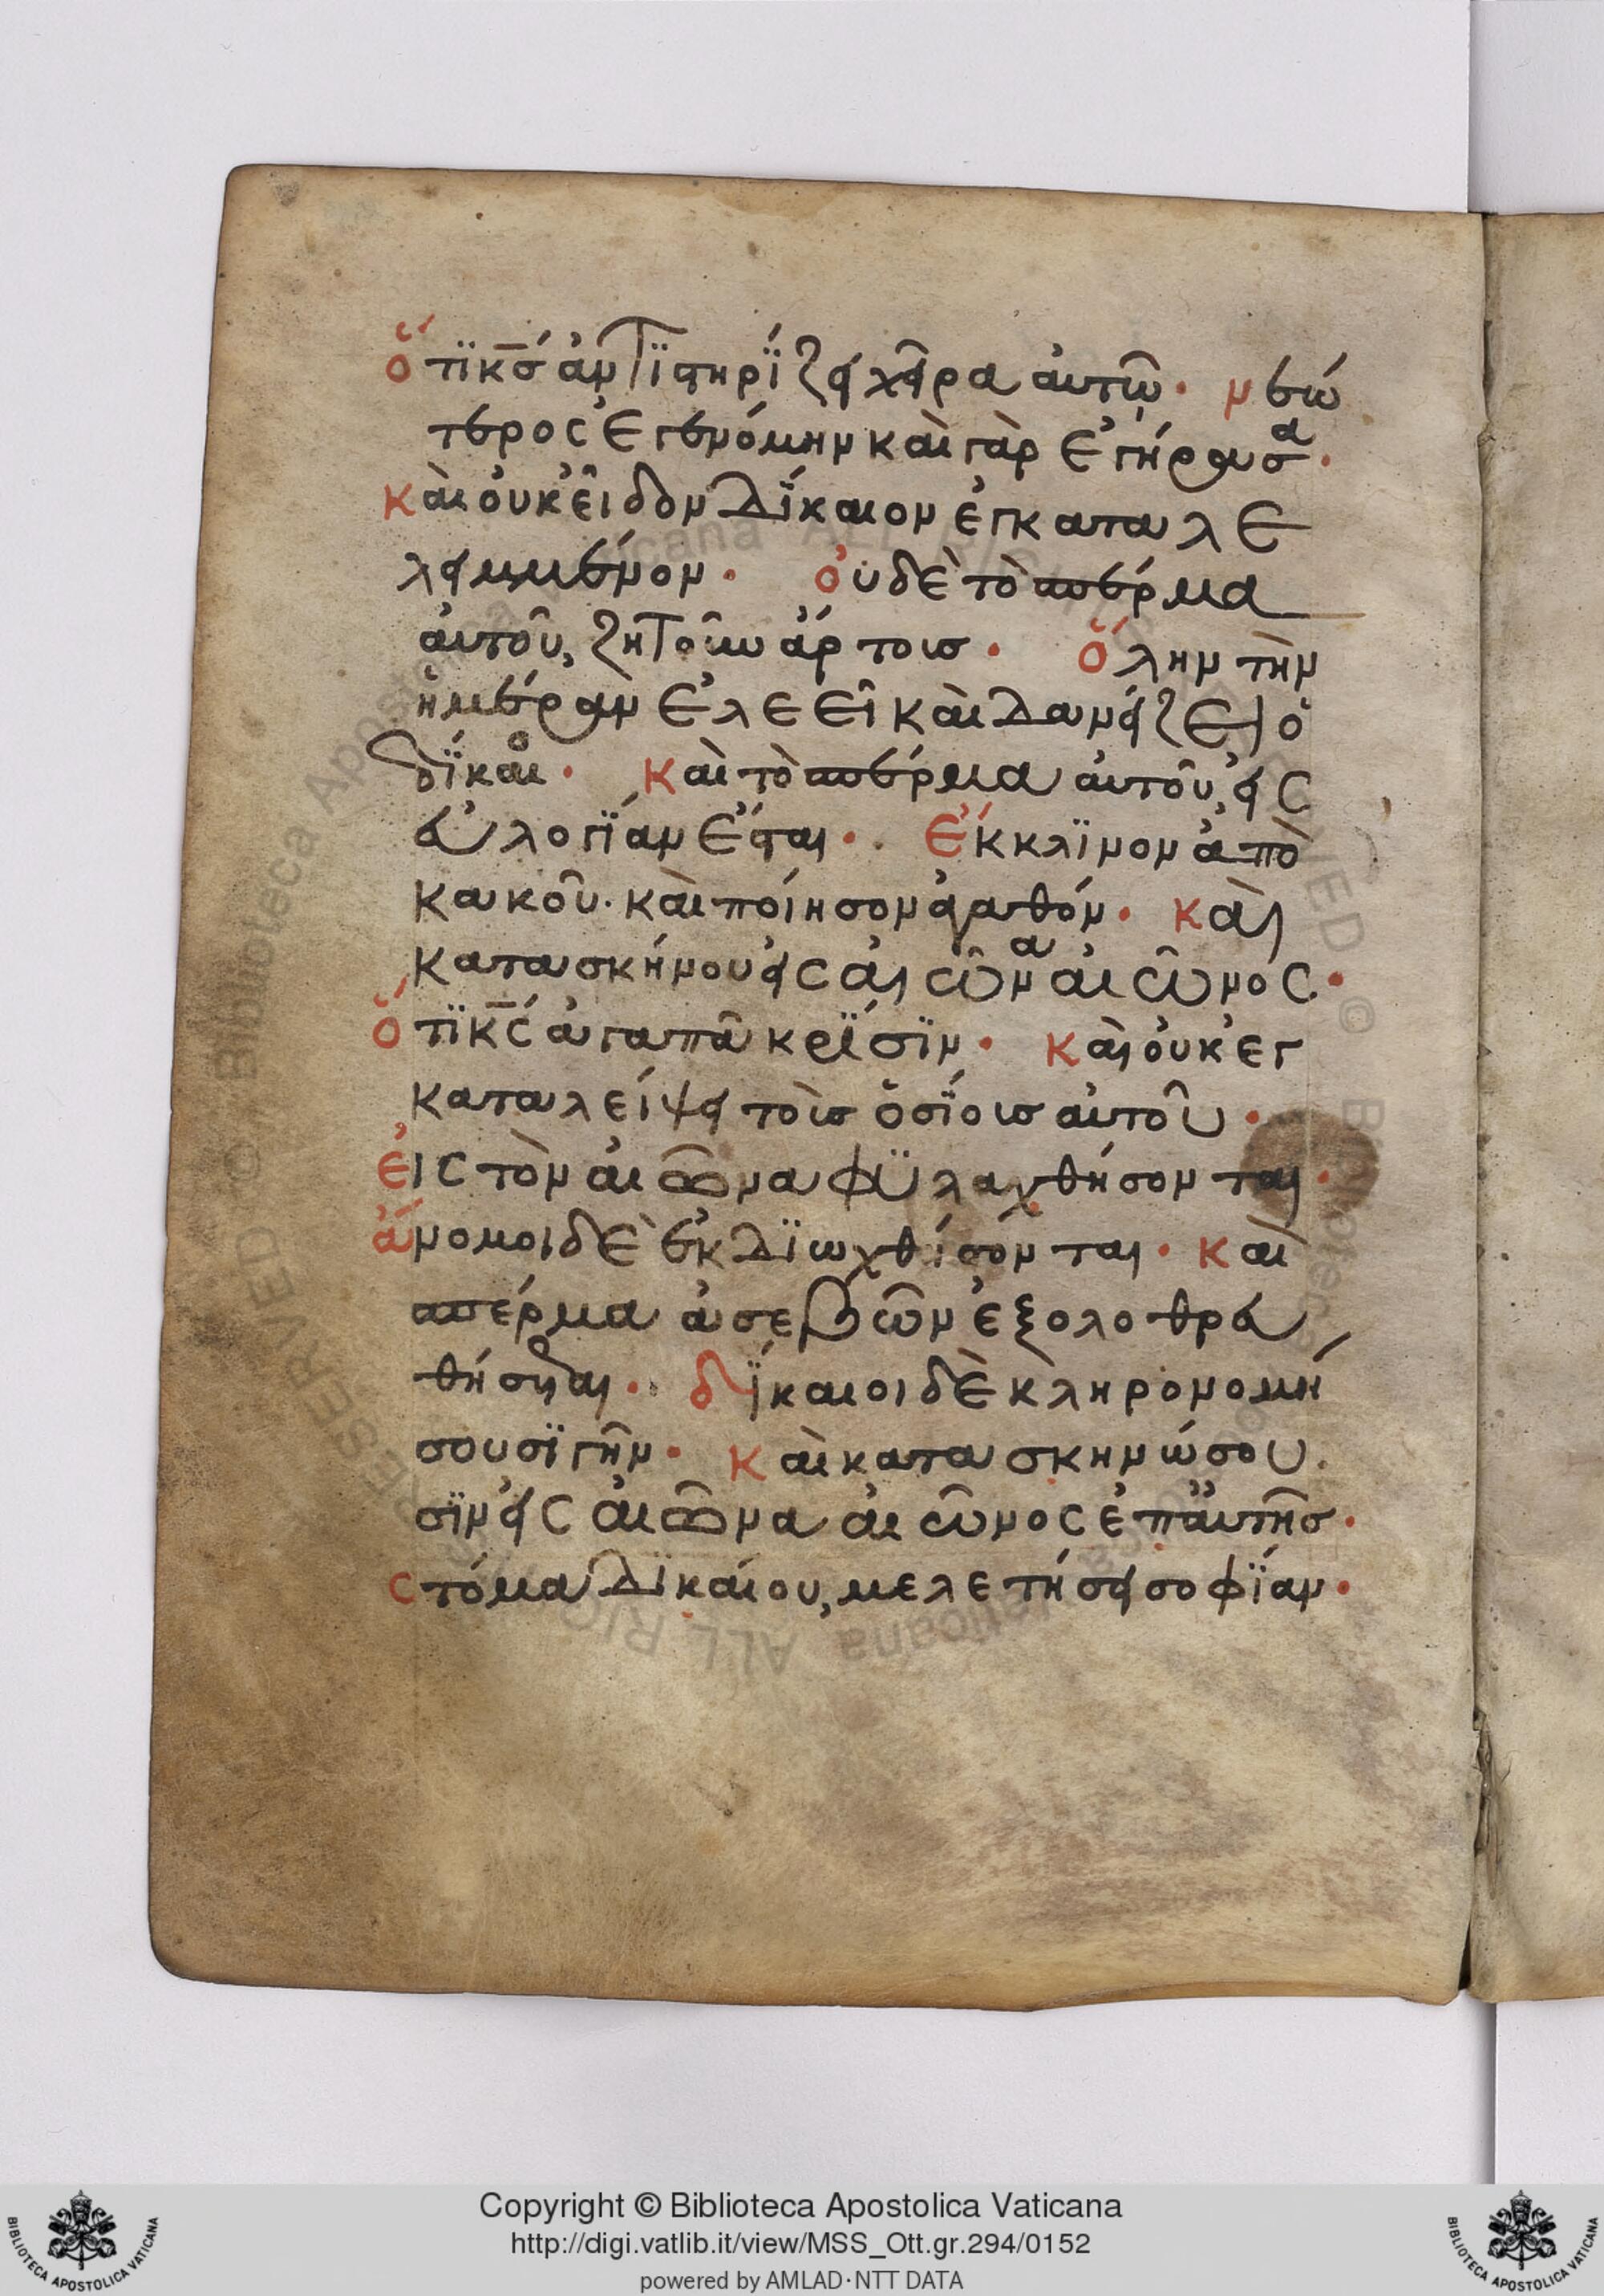 ὅτϊ κ̅ς̅ ἀντϊστηρίζει χεῖρα ἀυτῶ· νεώ
τερος ἐγενόμην καὶ γὰρ ἐγήρασα·
καὶ οὐκ εἶδον δίκαιον ἐγκαταλε
λειμμένον· οὐδὲ τὸ σπέρμα
ἀυτοῦ, ζητοῦν ἄρτοις· ὅλην τὴν
ἡμέραν ἐλεεῖ καὶ δανείζει ὁ
δίκαιο· καὶ τὸ σπέρμα ἀυτοῦ, εἰς
ἐυλογΐαν ἔσται· ἔκκλϊνον ἀπὸ
κακοῦ· καὶ ποίησον ἀγαθόν· καὶ
κατασκήνου εἰς αἰῶνα αἰῶνος·
ὅτϊ κ̅ς̅ ἀγαπᾶ κρΐσϊν· καὶ οὐκ εγ
καταλείψει τοὶς ὁσΐοις ἀυτοῦ·
εἰς τὸν αἰῶνα φϋλαχθήσονται·
ἄνομοι δὲ ἐκδϊωχθίσονται· καὶ
σπέρμα ἀσεβῶν ἐξολοθρευ
θήσεται· δΐκαιοι δὲ κληρονομή
σουσϊ γῆν· καὶ κατασκηνώσου
σϊν εἰς αἰῶνα αἰῶνος ἐπ ἀυτῆς·
στόμα δϊκαίου, μελετήσει σοφΐαν·
Copyright © Biblioteca Apostolica Vaticana
http://digi.vatlib.it/view/MSS_Ott.gr.294/0152
powered by AMLAD·NTT DATA